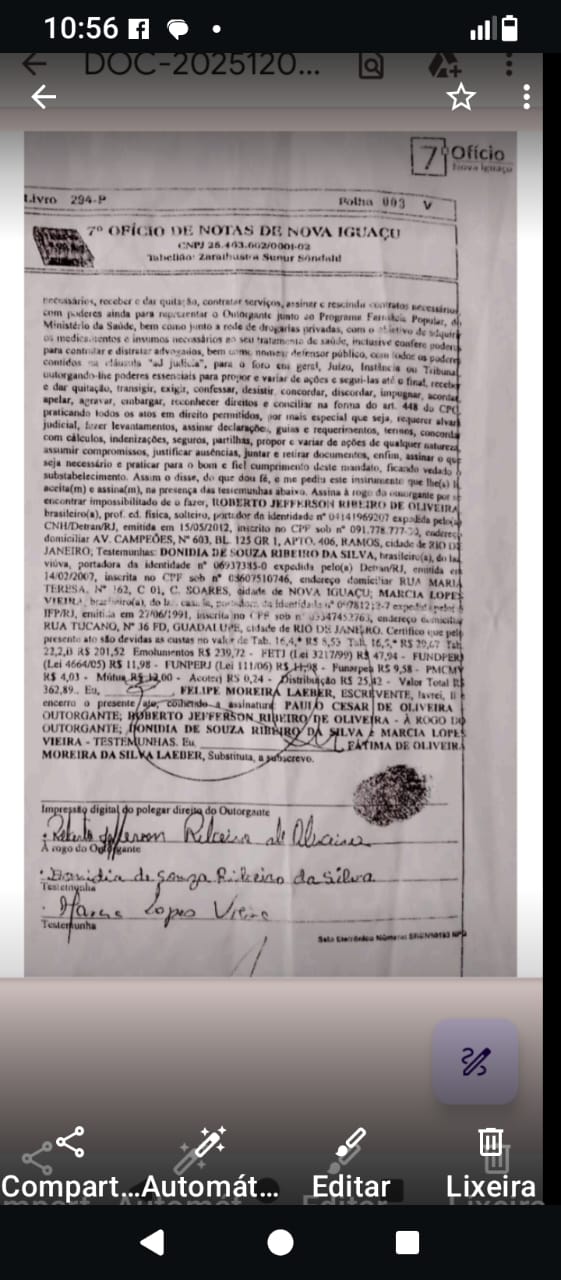 10:56
DOC-2025120...
7º Ofício
Nova Iguaçu
Livro 294-P Folha 003 V
7º OFÍCIO DE NOTAS DE NOVA IGUAÇU
CNPJ 26.403.602/0001-02
Tabelião: Zarathustra Sunur Sondahl
necessários, receber e dar quitação, contratar serviços, assinar e rescindir contratos necessário
com poderes ainda para representar o Outorgante junto ao Programa Farmácia Popular, do
Ministério da Saúde, bem como junto a rede de drogarias privadas, com o objetivo de adquirir
os medicamentos e insumos necessários ao seu tratamento de saúde, inclusive confere poderes
para contratar e distratar advogados, bem como nomear defensor público, com todos os poderes
contidos na cláusula "ad judicia", para o foro em geral, Juízo, Instância ou Tribunal
outorgando-lhe poderes essenciais para propor e variar de ações e segui-las até o final, receber
e dar quitação, transigir, exigir, confessar, desistir, concordar, discordar, impugnar, acordar
apelar, agravar, embargar, reconhecer direitos e conciliar na forma do art. 448 do CPC
praticando todos os atos em direito permitidos, por mais especial que seja, requerer alvará
judicial, fazer levantamentos, assinar declarações, guias e requerimentos, termos, concorda
com cálculos, indenizações, seguros, partilhas, propor e variar de ações de qualquer natureza
assumir compromissos, justificar ausências, juntar e retirar documentos, enfim, assinar o que
seja necessário e praticar para o bom e fiel cumprimento deste mandato, ficando vedado o
substabelecimento. Assim o disse, do que dou fé, e me pediu este instrumento que lhe(s) li
aceita(m) e assina(m), na presença das testemunhas abaixo. Assina à rogo do outorgante por se
encontrar impossibilitado de o fazer, ROBERTO JEFFERSON RIBEIRO DE OLIVEIRA,
brasileiro(a), prof. ed. física, solteiro, portador da identidade nº 04141969207 expedida pelo(a)
CNH/Detran/RJ, emitida em 15/05/2012, inscrito no CPF sob nº 091.778.777-, endereço
domiciliar AV. CAMPEÕES, Nº 603, BL. 125 GR 1, APTO. 406, RAMOS, cidade de RIO DE
JANEIRO; Testemunhas: DONIDIA DE SOUZA RIBEIRO DA SILVA, brasileiro(a), do lar,
viúva, portadora da identidade nº 06937385-0 expedida pelo(a) Detran/RJ, emitida em
14/02/2007, inscrita no CPF sob nº 03607510746, endereço domiciliar RUA MARIA
TERESA, Nº 162, C 01, C. SOARES, cidade de NOVA IGUAÇU; MARCIA LOPES
VIEIRA, brasileiro(a), do lar, casada, portadora da identidade nº expedida pelo
IFP/RJ, emitida em 27/06/1991, inscrita no CPF sob nº endereço domiciliar
RUA TUCANO, Nº 16 FD, GUADALUPE, cidade de RIO DE JANEIRO. Certifico que pelo
presente ato são devidas as custas no valor de Tab. 16,4,* R$ 8,53 Tab. 16,5,* R$ 29,67 Tab.
22,2,B R$ 201,52 Emolumentos R$ 239,72 - FETJ (Lei 3217/99) R$ 47,94 - FUNDPERJ
(Lei 4664/05) R$ 11,98 - FUNPERJ (Lei 111/06) R$ 11,98 - Funarpen R$ 9,58 - PMCMV
R$ 4,03 - Mútua R$ 12,00 - Acoterj R$ 0,24 - Distribuição R$ 25,42 - Valor Total R$
362,89.. Eu, FELIPE MOREIRA LAEBER, ESCREVENTE, lavrei, li e
encerro o presente ato, colhendo a assinatura: PAULO CESAR DE OLIVEIRA -
OUTORGANTE; ROBERTO JEFFERSON RIBEIRO DE OLIVEIRA - À ROGO DO
OUTORGANTE; DONIDIA DE SOUZA RIBEIRO DA SILVA e MARCIA LOPES
VIEIRA - TESTEMUNHAS. Eu, FÁTIMA DE OLIVEIRA
MOREIRA DA SILVA LAEBER, Substituta, a subscrevo.
Impressão digital do polegar direito do Outorgante
Roberto Jefferson Ribeiro de Oliveira
À rogo do Outorgante
Donidia de Souza Ribeiro da Silva
Testemunha
Marcia Lopes Vieira
Testemunha
Selo Eletrônico Número:
Compart... Automát... Editar Lixeira